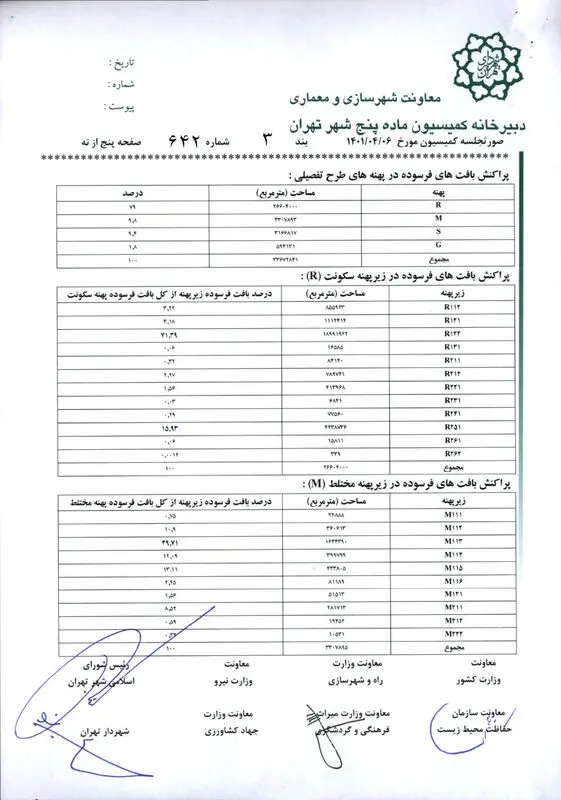 تاریخ :
شماره :
پیوست :
معاونت شهرسازی و معماری
دبیرخانه کمیسیون ماده پنج شهر تهران
صورتجلسه کمیسیون مورخ ۱۴۰۱/۰۴/۰۶ بند ۳ شماره ۶۴۲ صفحه پنج از نه
پراکنش بافت های فرسوده در پهنه های طرح تفصیلی :
پهنه مساحت (مترمربع) درصد
R ۲۶۶۰۴۰۰۰ ۷۹
M ۳۳۰۷۸۹۳ ۹,۸
S ۳۱۶۶۸۱۷ ۹,۴
G ۵۹۴۱۳۱ ۱,۸
مجموع ۳۳۶۷۲۸۴۱ ۱۰۰
پراکنش بافت های فرسوده در زیرپهنه سکونت (R) :
زیرپهنه مساحت (مترمربع) درصد بافت فرسوده زیرپهنه از کل بافت فرسوده پهنه سکونت
R۱۱۲ ۸۵۵۹۲۳ ۳,۲۲
R۱۲۱ ۱۱۱۲۴۱۴ ۴,۱۸
R۱۲۲ ۱۸۹۹۱۹۴۲ ۷۱,۳۹
R۱۳۱ ۱۶۵۸۵ ۰,۰۶
R۲۱۱ ۸۴۱۴۰ ۰,۳۲
R۲۱۲ ۷۸۹۷۴۱ ۲,۹۷
R۲۲۱ ۴۱۳۹۶۸ ۱,۵۶
R۲۳۱ ۶۸۴۱ ۰,۰۳
R۲۴۱ ۷۷۵۶۰ ۰,۲۹
R۲۵۱ ۴۲۳۸۷۳۶ ۱۵,۹۳
R۲۶۱ ۱۵۸۱۱ ۰,۰۶
R۲۶۲ ۳۳۹ ۰,۰۰۱۲
مجموع ۲۶۶۰۴۰۰۰ ۱۰۰
پراکنش بافت های فرسوده در زیرپهنه مختلط (M) :
زیرپهنه مساحت (مترمربع) درصد بافت فرسوده زیرپهنه از کل بافت فرسوده پهنه مختلط
M۱۱۱ ۲۴۸۸۸ ۰,۷۵
M۱۱۲ ۳۶۰۶۱۳ ۱۰,۹
M۱۱۳ ۱۶۴۴۳۹۰ ۴۹,۷۱
M۱۱۴ ۳۹۹۷۹۹ ۱۲,۰۹
M۱۱۵ ۴۳۳۸۰۵ ۱۳,۱۱
M۱۱۶ ۸۱۱۸۹ ۲,۴۵
M۱۲۱ ۵۱۵۱۳ ۱,۵۶
M۲۱۱ ۲۸۱۷۱۳ ۸,۵۲
M۲۱۲ ۱۹۴۵۴ ۰,۵۹
M۲۲۲ ۱۰۵۳۱ ۰,۳۲
مجموع ۳۳۰۷۸۹۵ ۱۰۰
معاونت معاونت وزارت معاونت رئیس شورای
وزارت کشور راه و شهرسازی وزارت نیرو اسلامی شهر تهران
معاونت سازمان معاونت وزارت میراث معاونت وزارت
حفاظت محیط زیست فرهنگی و گردشگری جهاد کشاورزی شهردار تهران